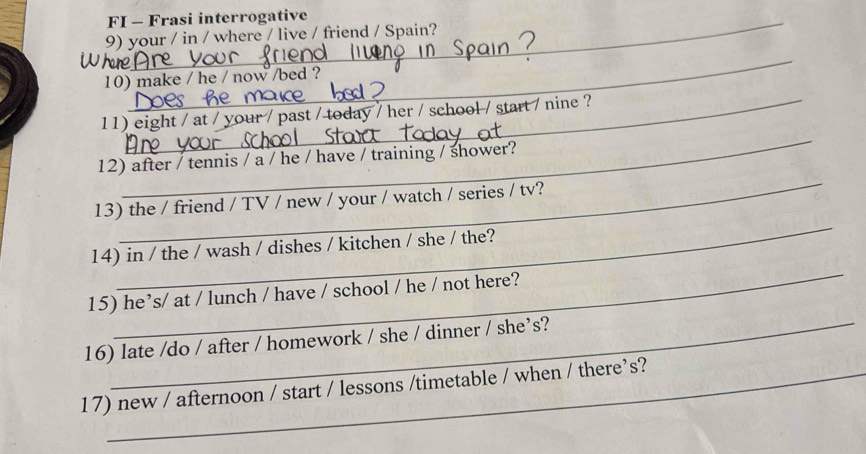 FI – Frasi interrogative
9) your / in / where / live / friend / Spain?
Where Are your friend living in Spain?
10) make / he / now /bed ?
Does he make bed?
11) eight / at / your / past / today / her / school / start / nine ?
Are your school start today at
12) after / tennis / a / he / have / training / shower?
13) the / friend / TV / new / your / watch / series / tv?
14) in / the / wash / dishes / kitchen / she / the?
15) he's/ at / lunch / have / school / he / not here?
16) late /do / after / homework / she / dinner / she's?
17) new / afternoon / start / lessons /timetable / when / there's?